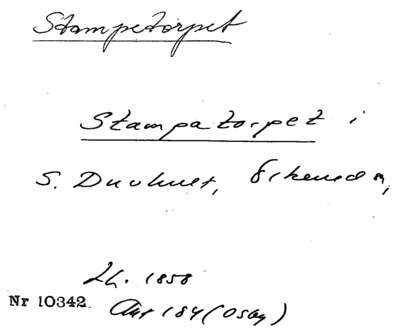 Stampetorpet
Stampatorpet i
S. Duvhult,
Lh. 1858
Nr 10342. Akt 184 (Osby)